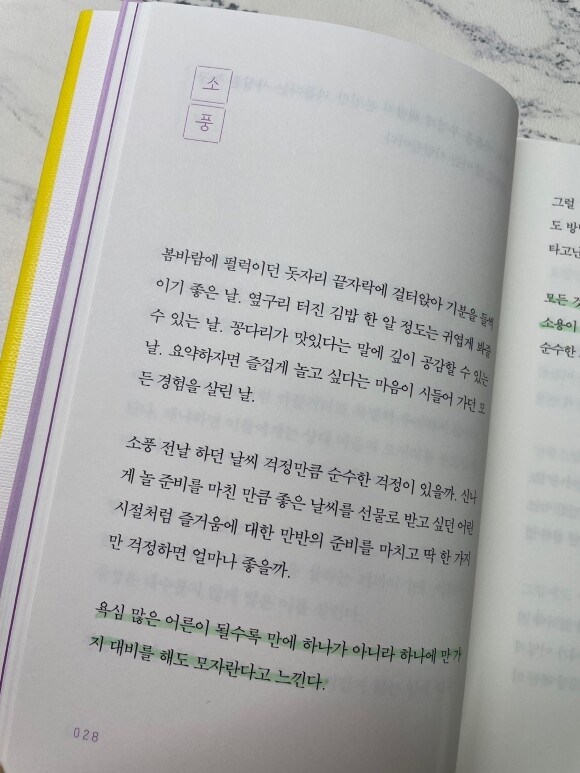 소
풍
봄바람에 펄럭이던 돗자리 끝자락에 걸터앉아 기분을 들썩
이기 좋은 날. 옆구리 터진 김밥 한 알 정도는 귀엽게 봐줄
수 있는 날. 꽁다리가 맛있다는 말에 깊이 공감할 수 있는
날. 요약하자면 즐겁게 놀고 싶다는 마음이 시들어 가던 모
든 경험을 살린 날.
소풍 전날 하던 날씨 걱정만큼 순수한 걱정이 있을까. 신나
게 놀 준비를 마친 만큼 좋은 날씨를 선물로 받고 싶던 어린
시절처럼 즐거움에 대한 만반의 준비를 마치고 딱 한 가지
만 걱정하면 얼마나 좋을까.
욕심 많은 어른이 될수록 만에 하나가 아니라 하나에 만 가
지 대비를 해도 모자란다고 느낀다.
028
그럴
도 방
타고난
모든 것
소용이
순수한